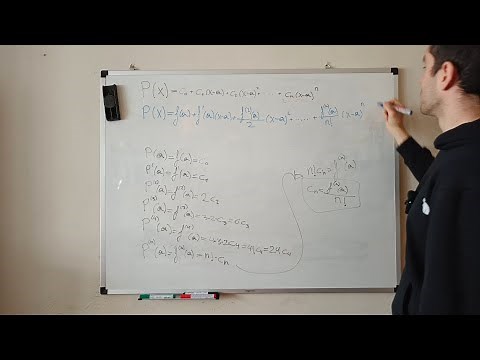 P(x) = c₀ + c₁(x-a) + c₂(x-a)² + ... + cₙ(x-a)ⁿ
P(x) = f(a) + f'(a)(x-a) + f⁽²⁾(a)/2 (x-a)² + ... + f⁽ⁿ⁾(a)/n! (x-a)ⁿ
P(a) = f(a) = c₀
P'(a) = f'(a) = c₁
P⁽²⁾(a) = f⁽²⁾(a) = 2c₂
P⁽³⁾(a) = f⁽³⁾(a) = 3·2c₃ = 6c₃
P⁽⁴⁾(a) = f⁽⁴⁾(a) = 4·3·2c₄ = 4!c₄ = 24c₄
P⁽ⁿ⁾(a) = f⁽ⁿ⁾(a) = n!·cₙ
n!cₙ = f⁽ⁿ⁾(a)
cₙ = f⁽ⁿ⁾(a)/n!